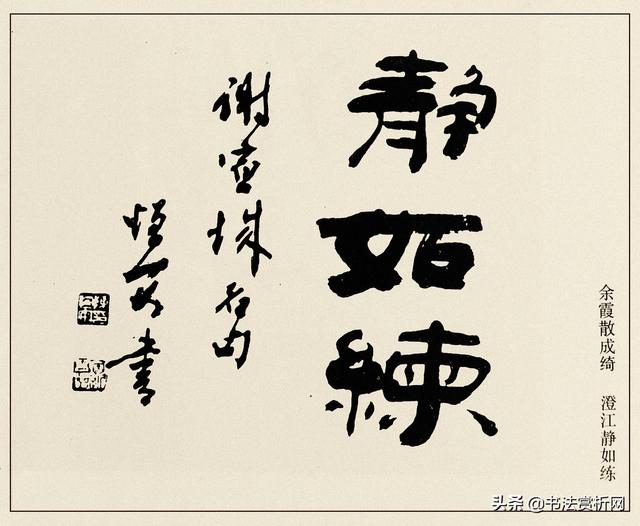 余霞散成绮 澄江静如练
靜如練
謝宣城名句
書
头条 @书法赏析网